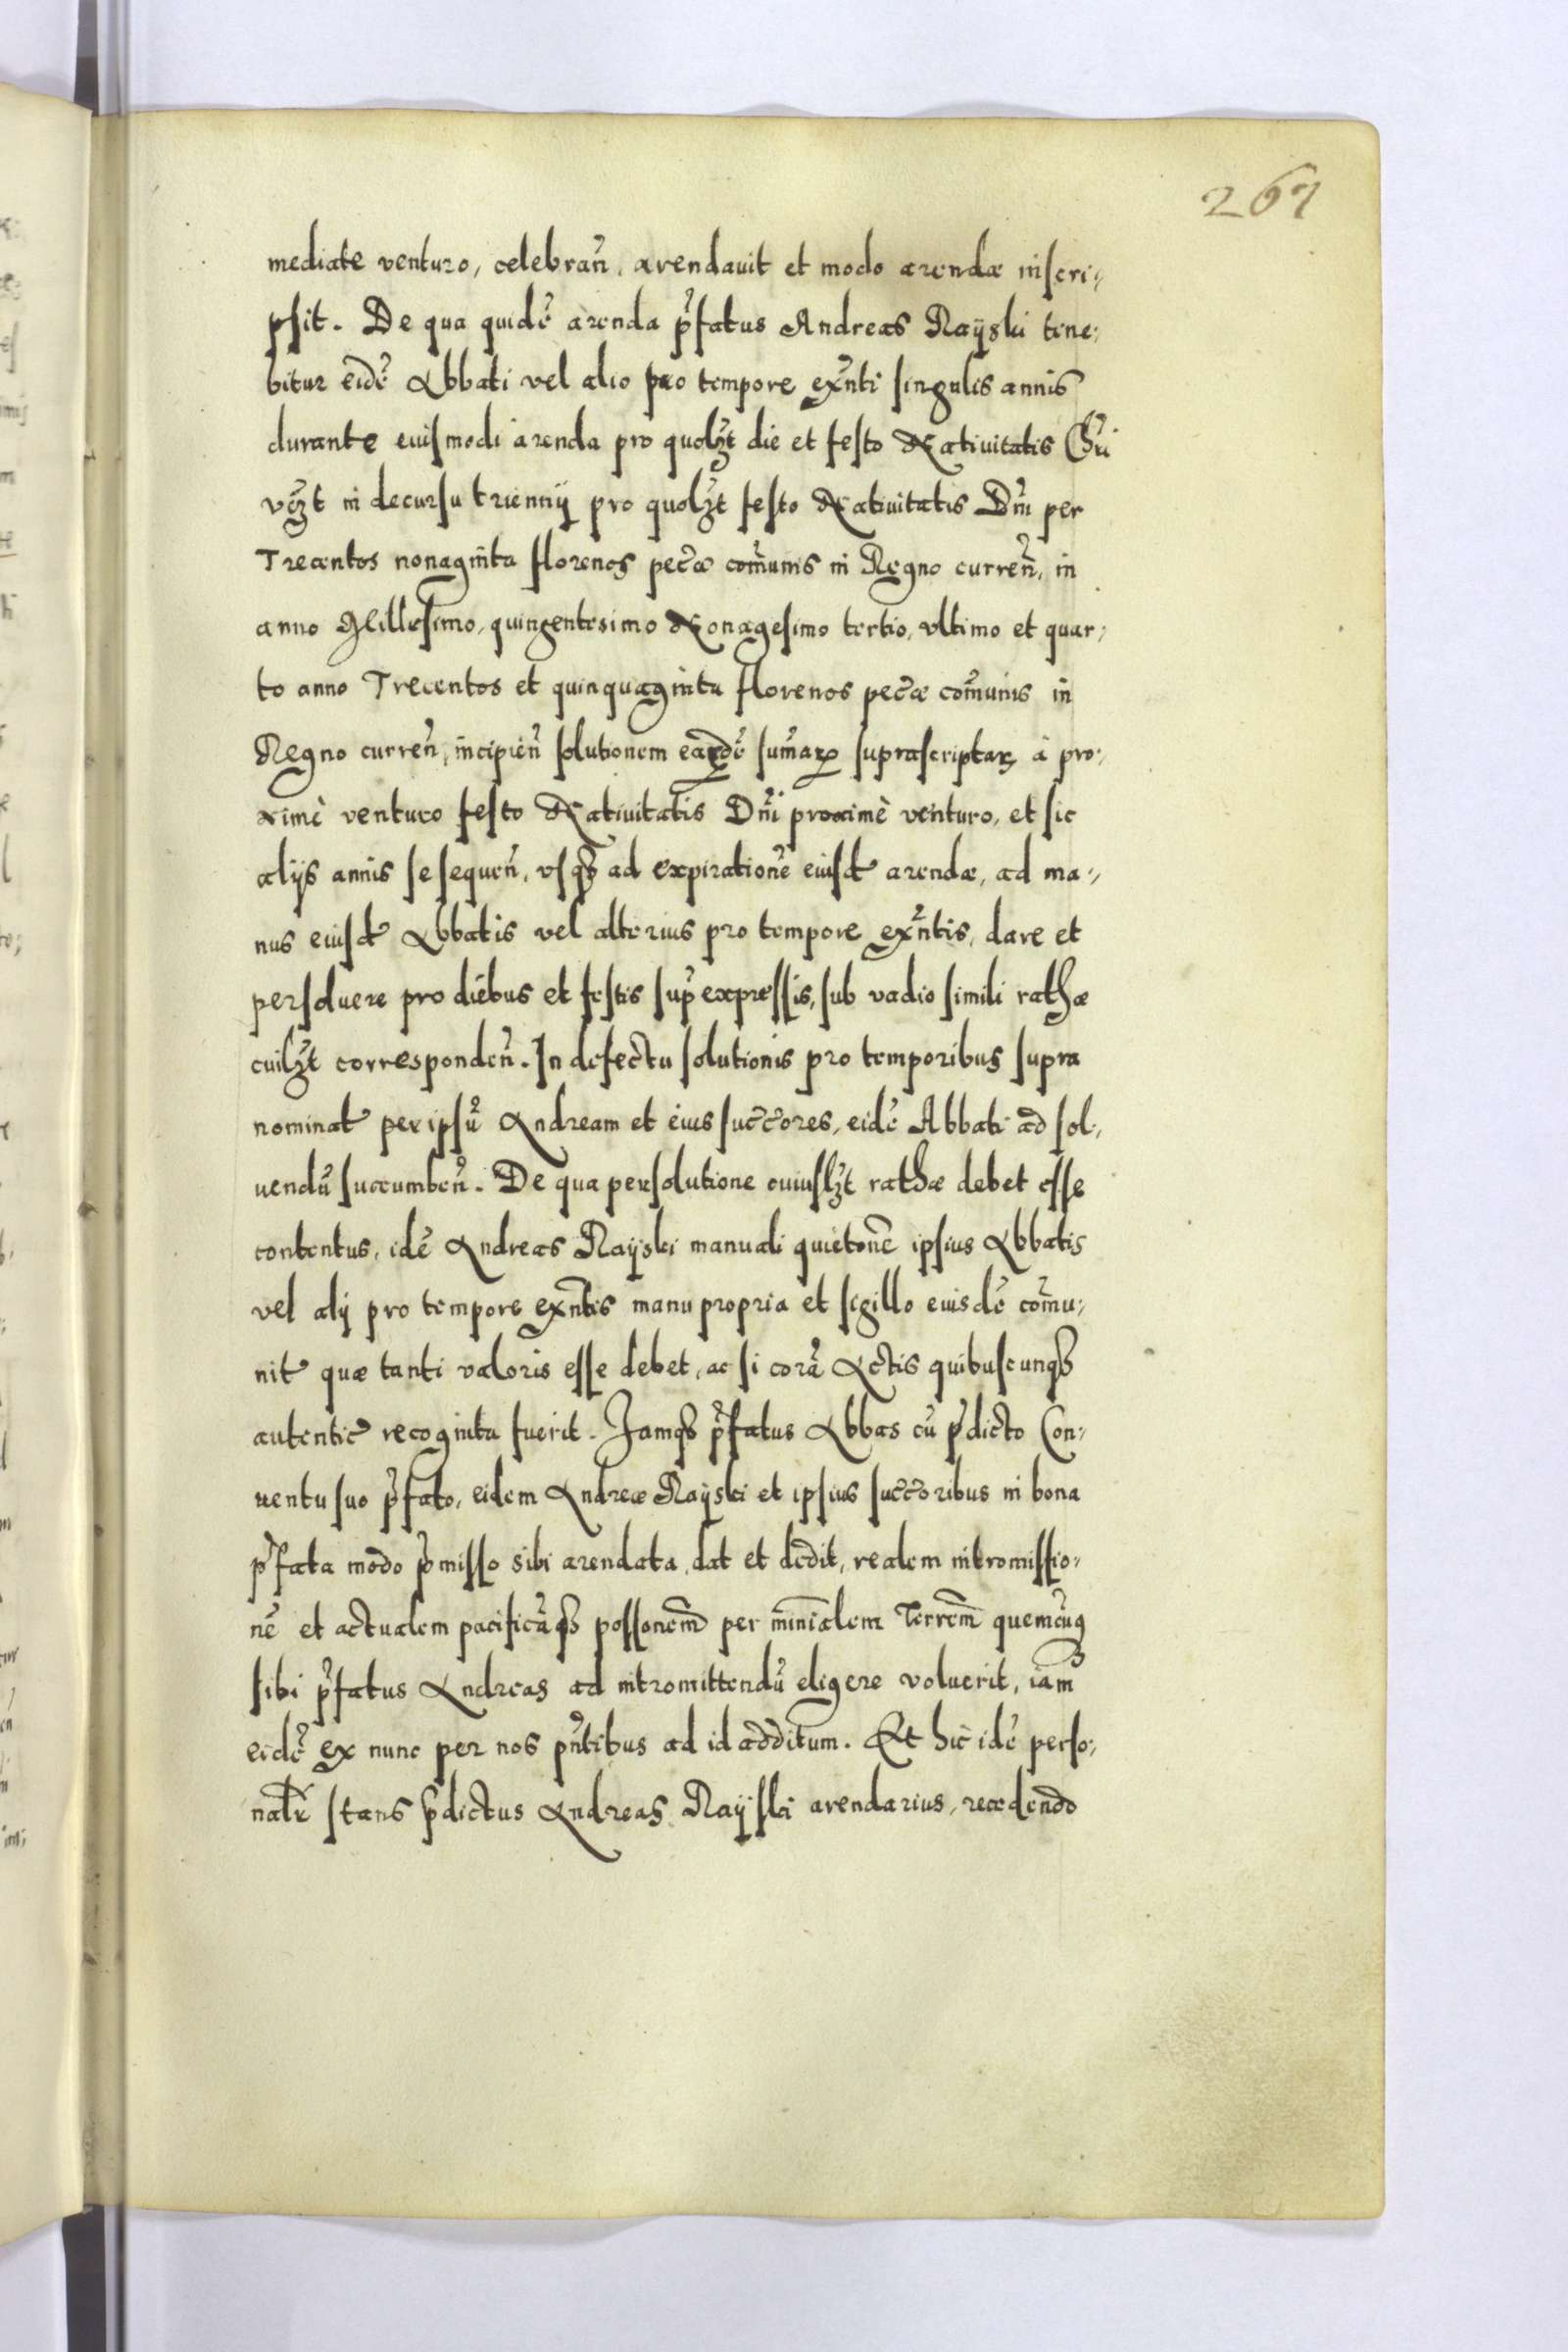 267
mediate venturo, celebrañ, arendauit et modo arendæ inscri-
psit. De qua quidẽ arenda p̃fatus Andreas Raÿski tene-
bitur eidẽ Abbati vel alio pro tempore ex̃nti singulis annis
durante euismodi arenda pro quolʒt die et festo Natiuitatis Chrĩ
vʒt in decursu triennÿ pro quolʒt festo Natiuitatis Dñi per
Trecentos nonaginta florenos pecc̃æ com̃unis in Regno curreñ, in
anno Millesimo, quingentesimo Nonagesimo tertio, vltimo et quar-
to anno Trecentos et quinquaginta florenos pec̃æ com̃unis in
Regno curreñ, incipieñ solutionem earꝝdẽ sum̃aꝝ suprascriptaꝝ à pro-
ximè venturo festo Natiuitatis Dñi proximè venturo, et sic
alÿs annis se sequeñ, vsqꝫ ad expirationẽ eiusd arendæ, ad ma-
nus eiusd Abbatis vel alterius pro tempore ex̃ntis, dare et
persoluere pro diebus et festis sup̃ expressis, sub vadio simili rathæ
cuilʒt correspondeñ. In defectu solutionis pro temporibus supra
nominat per ipsũ Andream et eius succ̃ores, eidẽ Abbati ad sol-
uendũ succumbeñ. De qua persolutione cuiuslʒt rathæ debet esse
contentus, idẽ Andreas Raÿski manuali quietonẽ ipsius Abbatis
vel alÿ pro tempore ex̃ntis manu propria et sigillo eiusdẽ com̃u-
nit quæ tanti valoris esse debet, ac si corã Actis quibuscunqꝫ
autentic̃ recognita fuerit. Jamqꝫ p̃fatus Abbas cũ p̃dicto Con-
uentu suo p̃fato, eidem Andreæ Raÿski et ipsius succ̃oribus in bona
p̃fata modo p̃misso sibi arendata, dat et dedit, realem intromissio-
nẽ et actualem pacificãqꝫ possonem̃ per minĩalem Terrem̃ quemcũqꝫ
sibi p̃fatus Andreas ad intromittendũ eligere voluerit, iam
eidẽ ex nunc per nos p̃ntibus ad id additum. Et hic idẽ perso-
nalr̃ stans p̃dictus Andreas Raÿski arendarius, recedendo